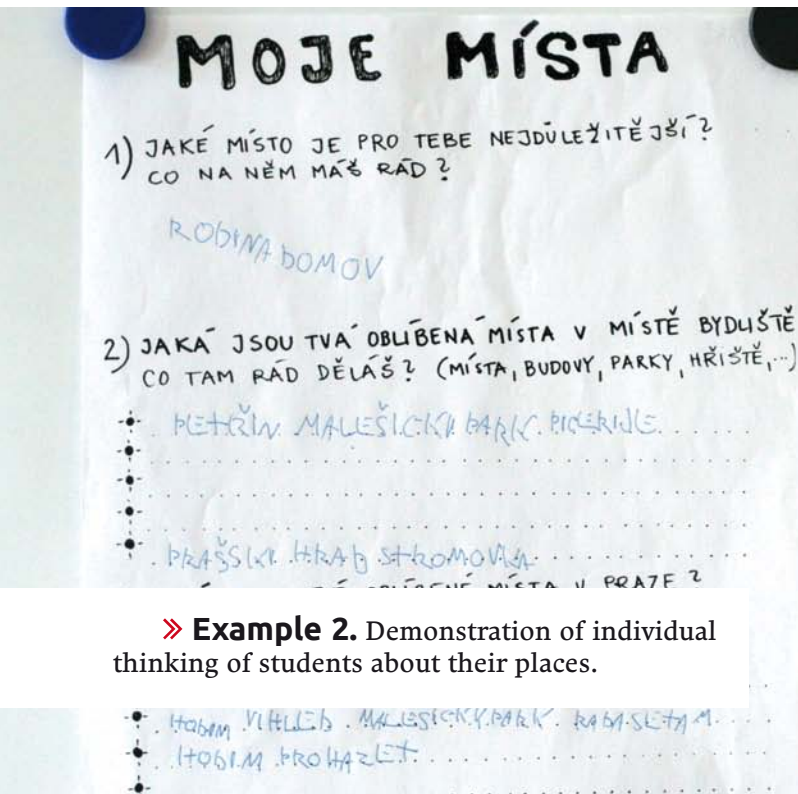 MOJE MÍSTA
1) JAKÉ MÍSTO JE PRO TEBE NEJDŮLEŽITĚJŠÍ?
CO NA NĚM MÁŠ RÁD?
RODINA DOMOV
2) JAKÁ JSOU TVÁ OBLÍBENÁ MÍSTA V MÍSTĚ BYDLIŠTĚ
CO TAM RÁD DĚLÁŠ? (MÍSTA, BUDOVY, PARKY, HŘIŠTĚ,...)
PETŘÍN. MALEŠICKÝ PARK.
HRAD STROMOVKA
MÍSTA V PRAZE?
» Example 2. Demonstration of individual
thinking of students about their places.
HODIM VIHLED. MALESICKY PARK. RADA SE TAM
HODIM PROHAZET